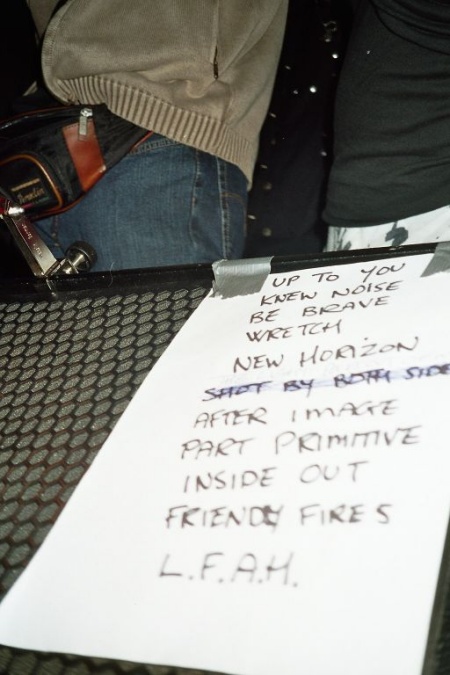 UP TO YOU
KNEW NOISE
BE BRAVE
WRETCH
NEW HORIZON
SHOT BY BOTH SIDE
AFTER IMAGE
PART PRIMITIVE
INSIDE OUT
FRIENDLY FIRES
L.F.A.H.